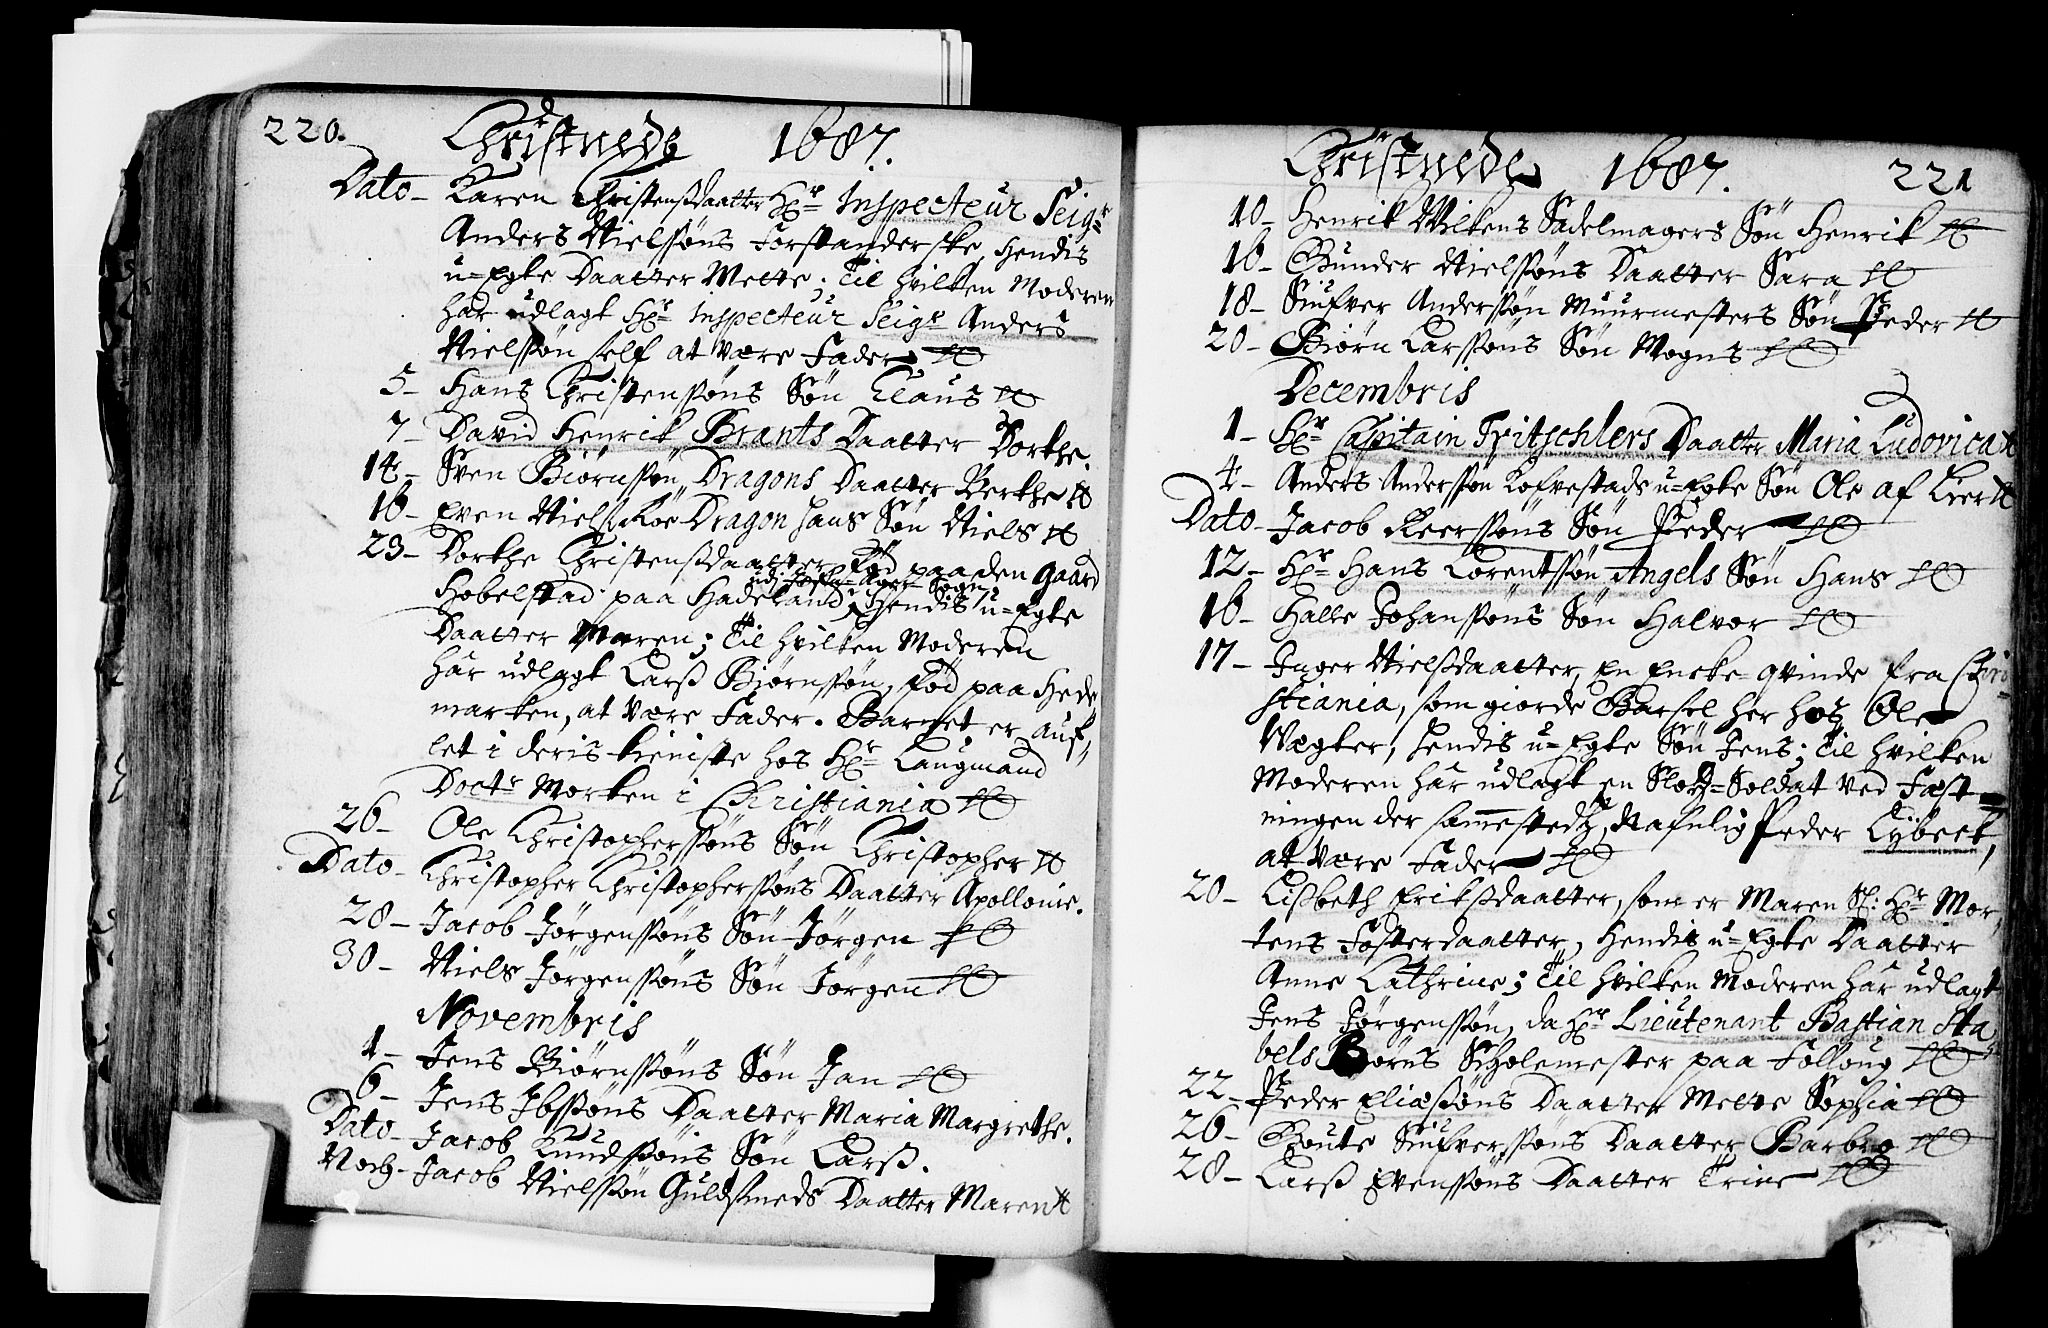 220.
Christnede 1687.
Dato - Karen Christensdaatter Hr Inspecteur Seigr
Anders Nielsøns Forstanderske, Hendis
u=Egte Daatter Mette; Til hvilken Moderen
har udlagt Hr Inspecteur Seigr Anders
Nielssøn self at være Fader.
5 - Hans Christenssøns Søn Claus
7 - David Henrik Brants Daatter Dorthe.
14 - Sven Biørnssøn Dragons Daatter Berthe
16 - Even Niels Dragon hans Søn Niels
23 - Dorthe Christensdaatter Fød paa den Gaard
Hobelstad paa Hadeland, Hendis u=Egte
Daatter Maren; Til hvilken Moderen
har udlagt Larß Biørnssøn, Fød paa Hede
marken, at være Fader. Barnet er auf,
let i deris tieniste hos Hr Laugmand
Doctr Morken i Christiania
26 - Ole Christopherssøns Søn Christopher
Dato - Christopher Christopherssøns Daatter Apollonie.
28 - Jacob Jørgenssøns Søn Jørgen
30 - Niels Jørgenssøns Søn Jørgen
Novembris
1 - Jens Biørnssøns Søn Jan
6 - Jens Ibssøns Daatter Maria Margrethe.
Dato - Jacob Knudssøns Søn Larß.
Noch - Jacob Nielssøn Guldsmeds Daatter Maren
Christnede 1687. 221
10 - Henrik Wilkens Sadelmagers Søn Henrik
16 - Gunder Nielssøns Daatter Sara
18 - Siufver Anderssøn Muurmesters Søn Peder
20 - Biørn Larssøns Søn Mogns
Decembris
1 - Hr Capitain Fritschlers Daatter Maria Ludovica
4 - Anders Anderssøn Lofvestads u=Egte Søn Ole af Lier
Dato - Jacob Keerssøns Søn Peder
12 - Hr Hans Lorentssøn Angels Søn Hans
16 - Halle Johanssøns Søn Halvor
17 - Inger Nielsdaatter, En Encke=qvinde fra Chri=
stiania, som giorde Barsel her hos Ole
Vægter, hendis u=Egte Søn Jens; Til hvilken
Moderen har udlagt en Slotz=Soldat ved Fæst=
ningen der sammestedtz, Nafnlig Peder Lybeck,
at være Fader
20 - Lisbeth Eriksdaatter, som er Maren Sl: Hr Mor
tens Fosterdaatter, Hendis u=Egte Daatter
Anne Cathrine; Til hvilken Moderen har udlagt
Jens Jørgenssøn, da Hr Lieutenant Bastian Sta
bels Børns Skolemester paa Folloug
22 - Peder Eliæssøns Daatter Mette Sophia
26 - Goute Siufverssøns Daatter Barbro
28 - Larß Evenssøns Daatter Trine